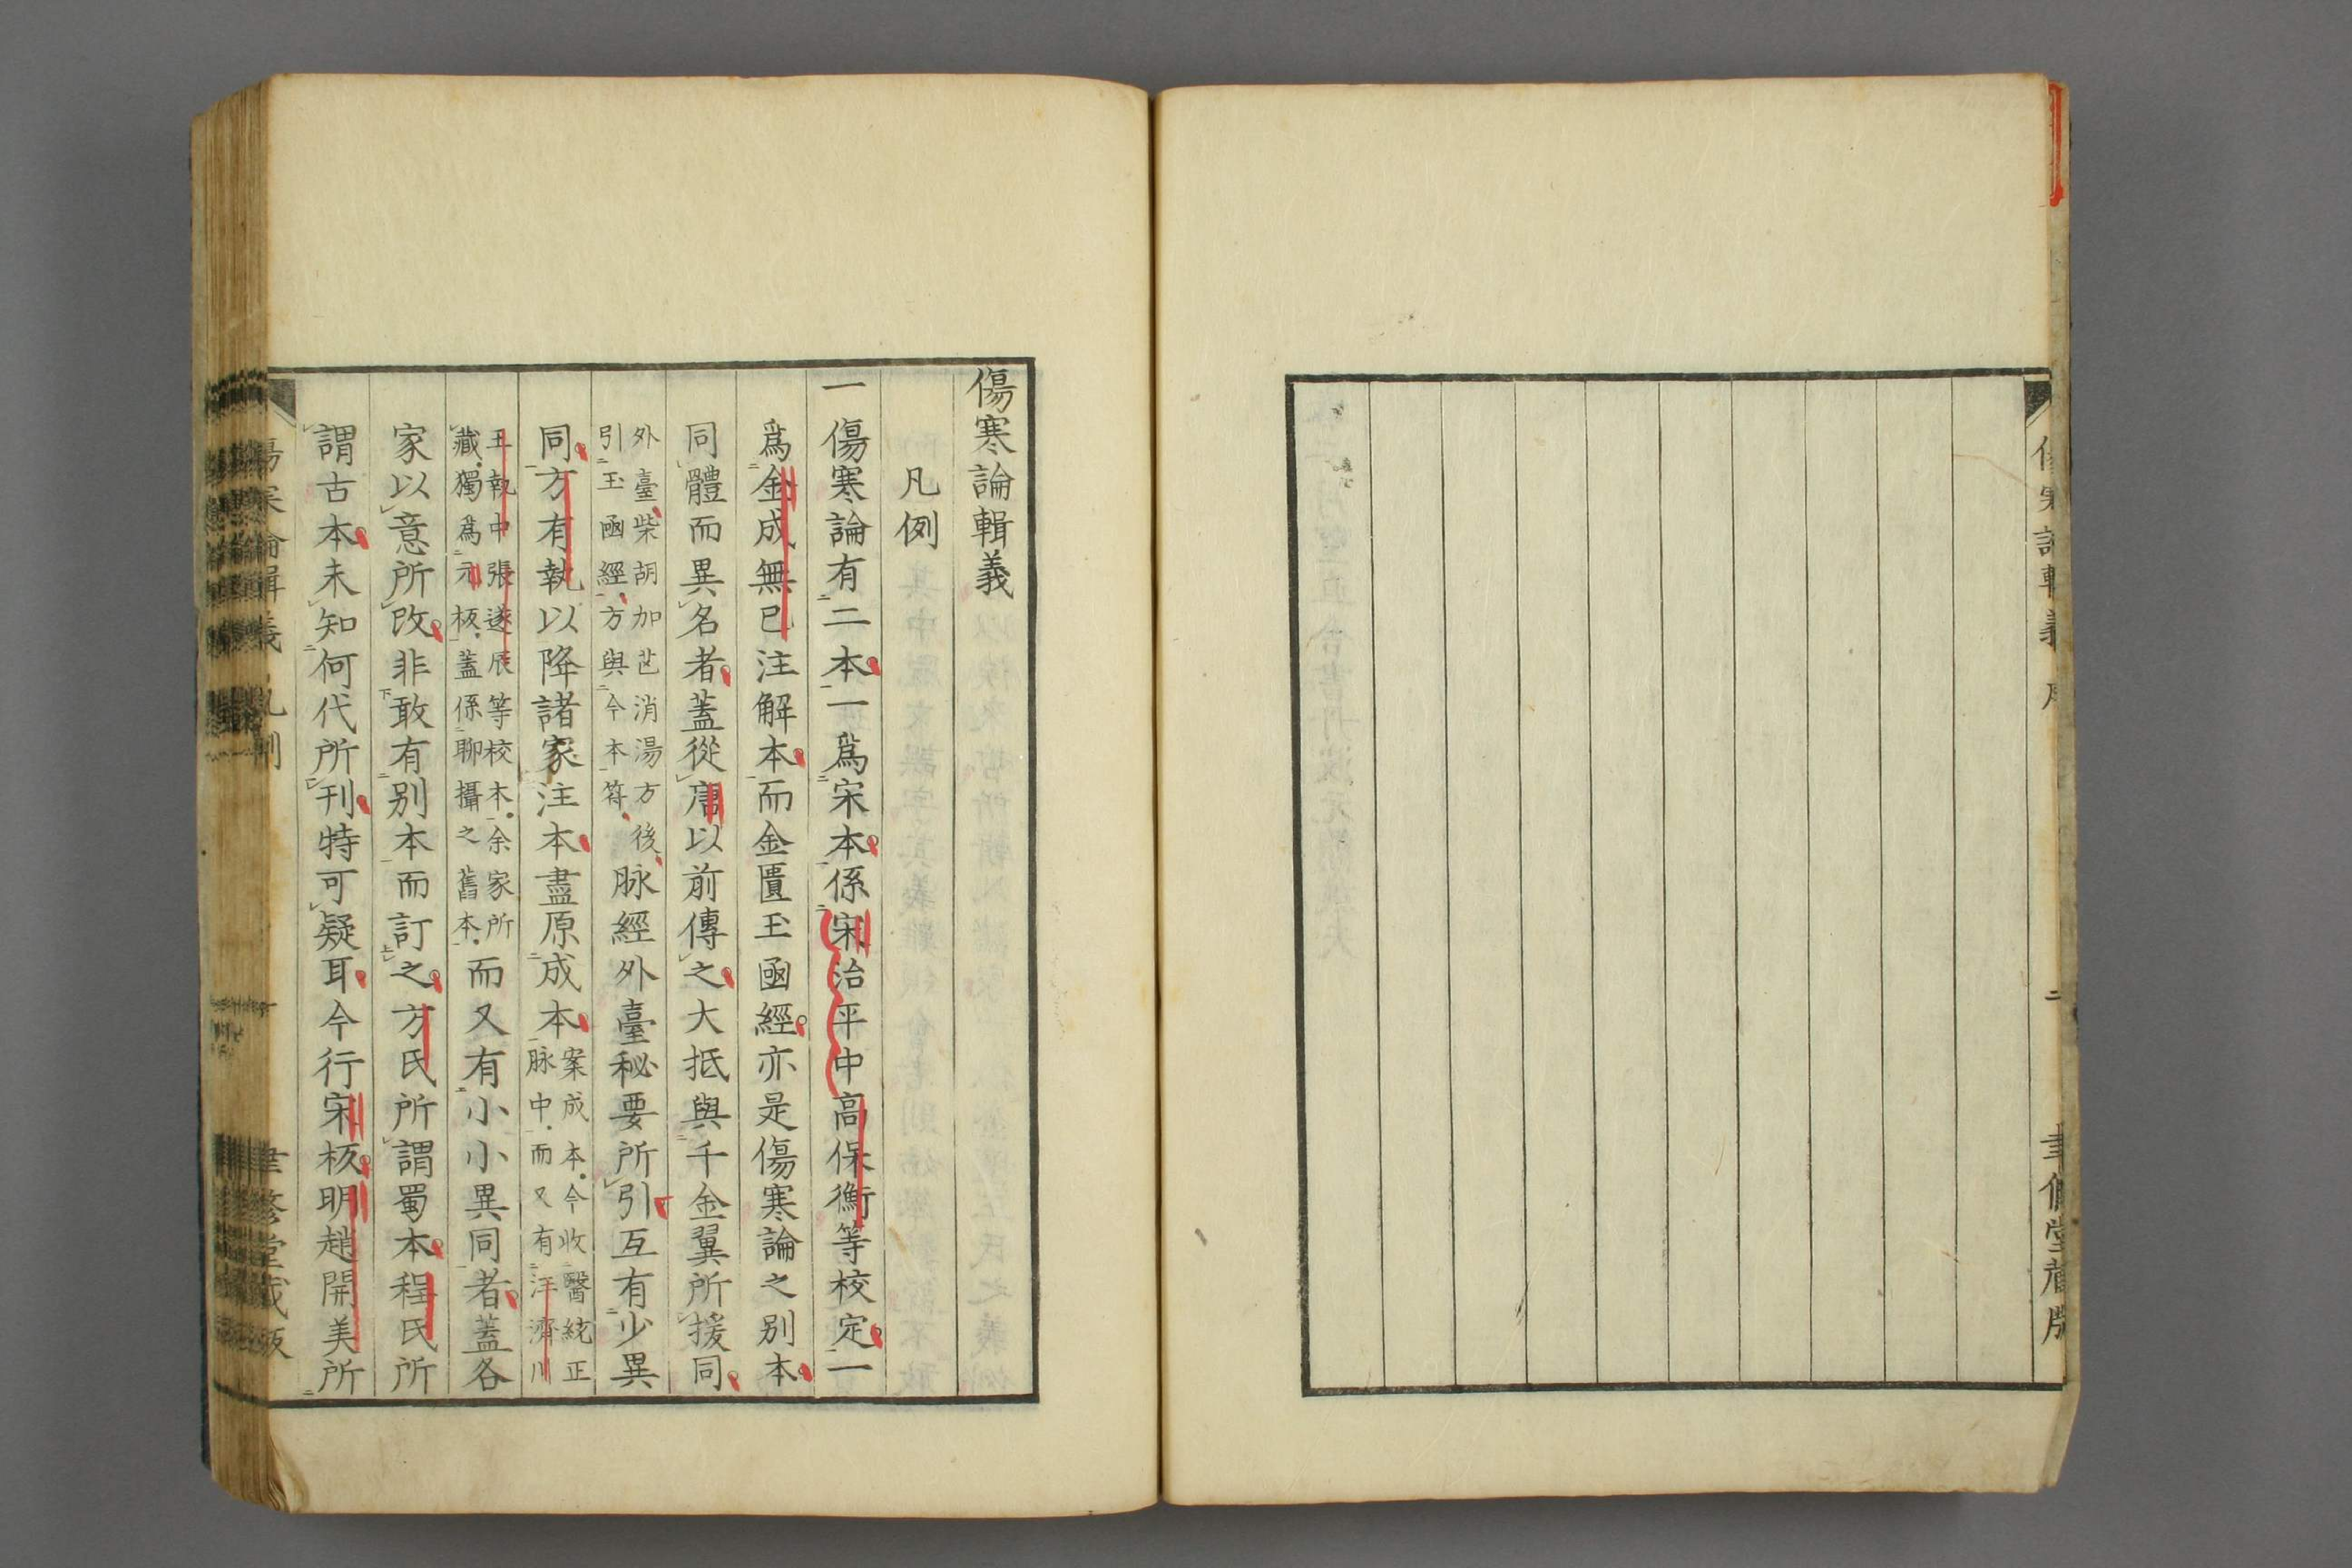 傷寒論輯義
凡例
一傷寒論有二本一爲宋本係宋治平中高保衡等校定一
爲金成無已注解本而金匱玉函經亦是傷寒論之別本
同體而異名者蓋從唐以前傳之大抵與千金翼所援同
外臺柴胡加芒消湯方後
引玉函經方與今本符
脉經外臺秘要所引互有少異
同方有執以降諸家注本盡原成本
案成本今收醫統正
脉中而又有汪濟川
王執中張遂辰等校本余家所
藏獨爲元板蓋係聊攝之舊本
而又有小小異同者蓋各
家以意所改非敢有別本而訂之方氏所謂蜀本程氏所
謂古本未知何代所刊特可疑耳今行宋板明趙開美所
傷寒論輯義 凡例
一
聿修堂藏版
二
聿修堂藏版